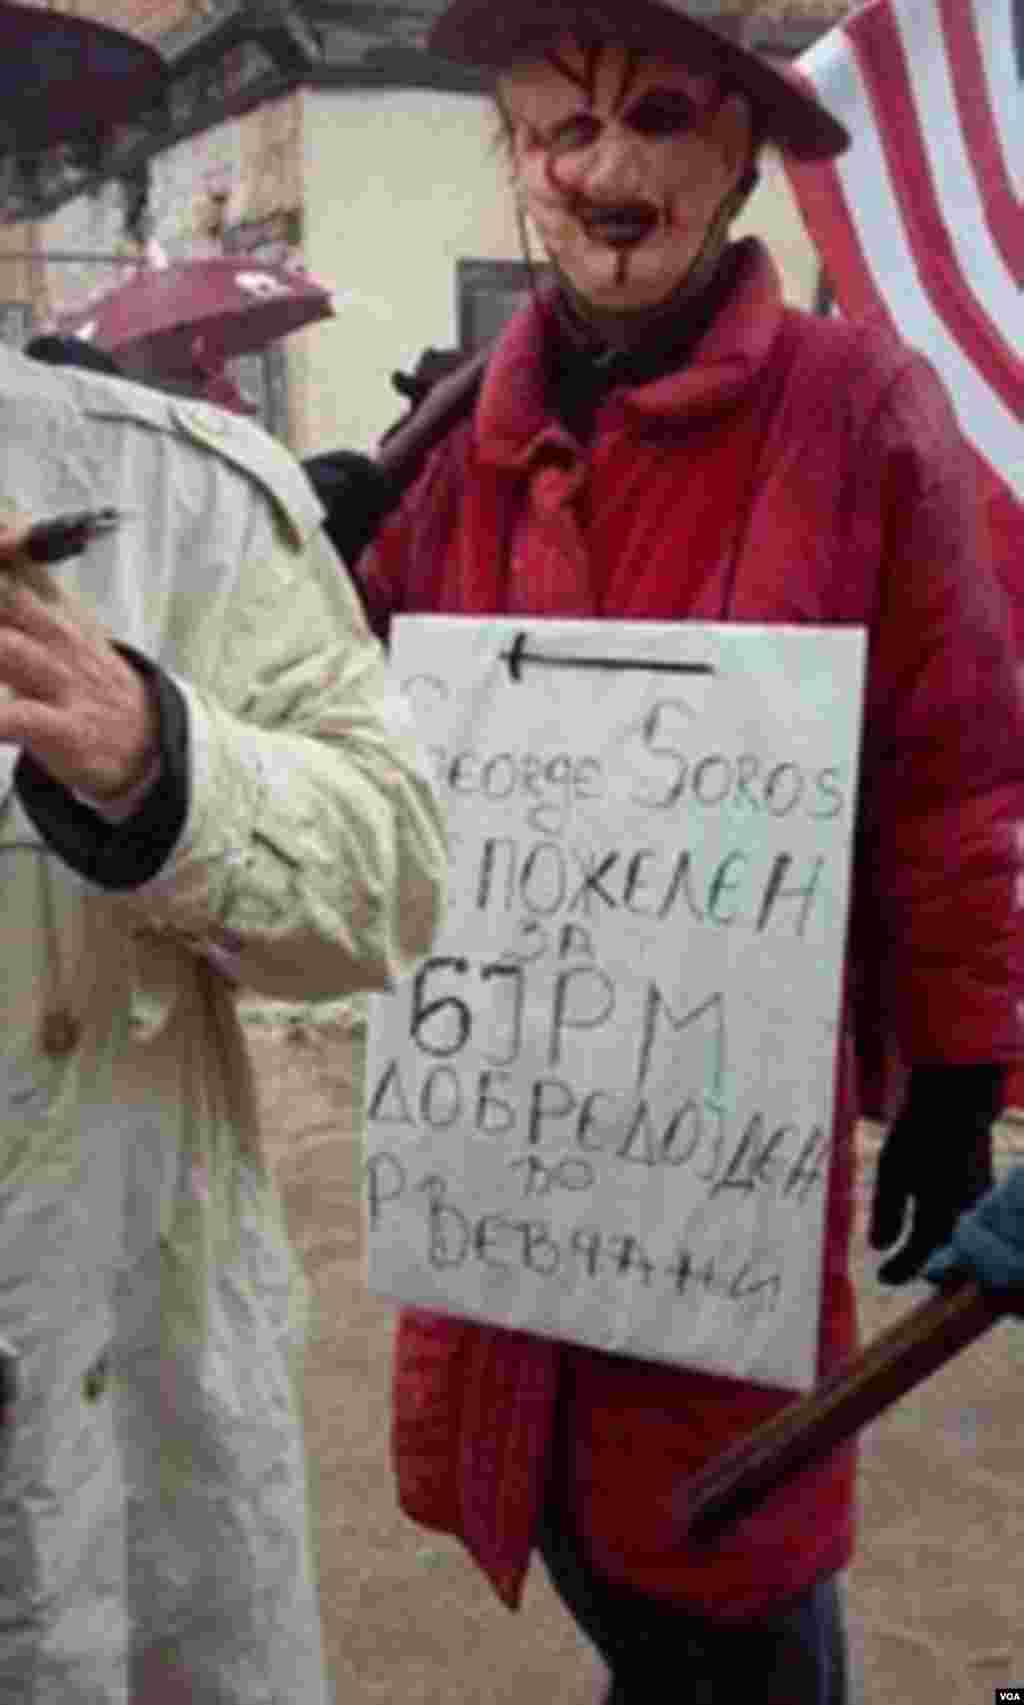 George Soros
Е ПОЖЕЛЕН
ЗА
БЈРМ
ДОБРЕДОЈДЕН
ВО
РЪЕВЧАНИ
VOA